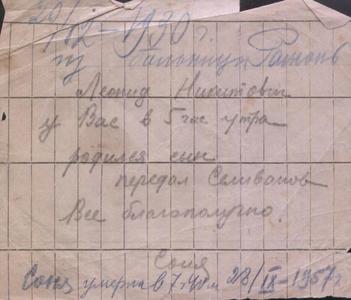 20/
12-1930 г.
из больницы Рамонь
Леонид Никитович
у Вас в 5 час утра
родился сын
передал Селиванов
Все благополучно.
Соня
Соня умерла в 7 ч 28/IX-1957 г